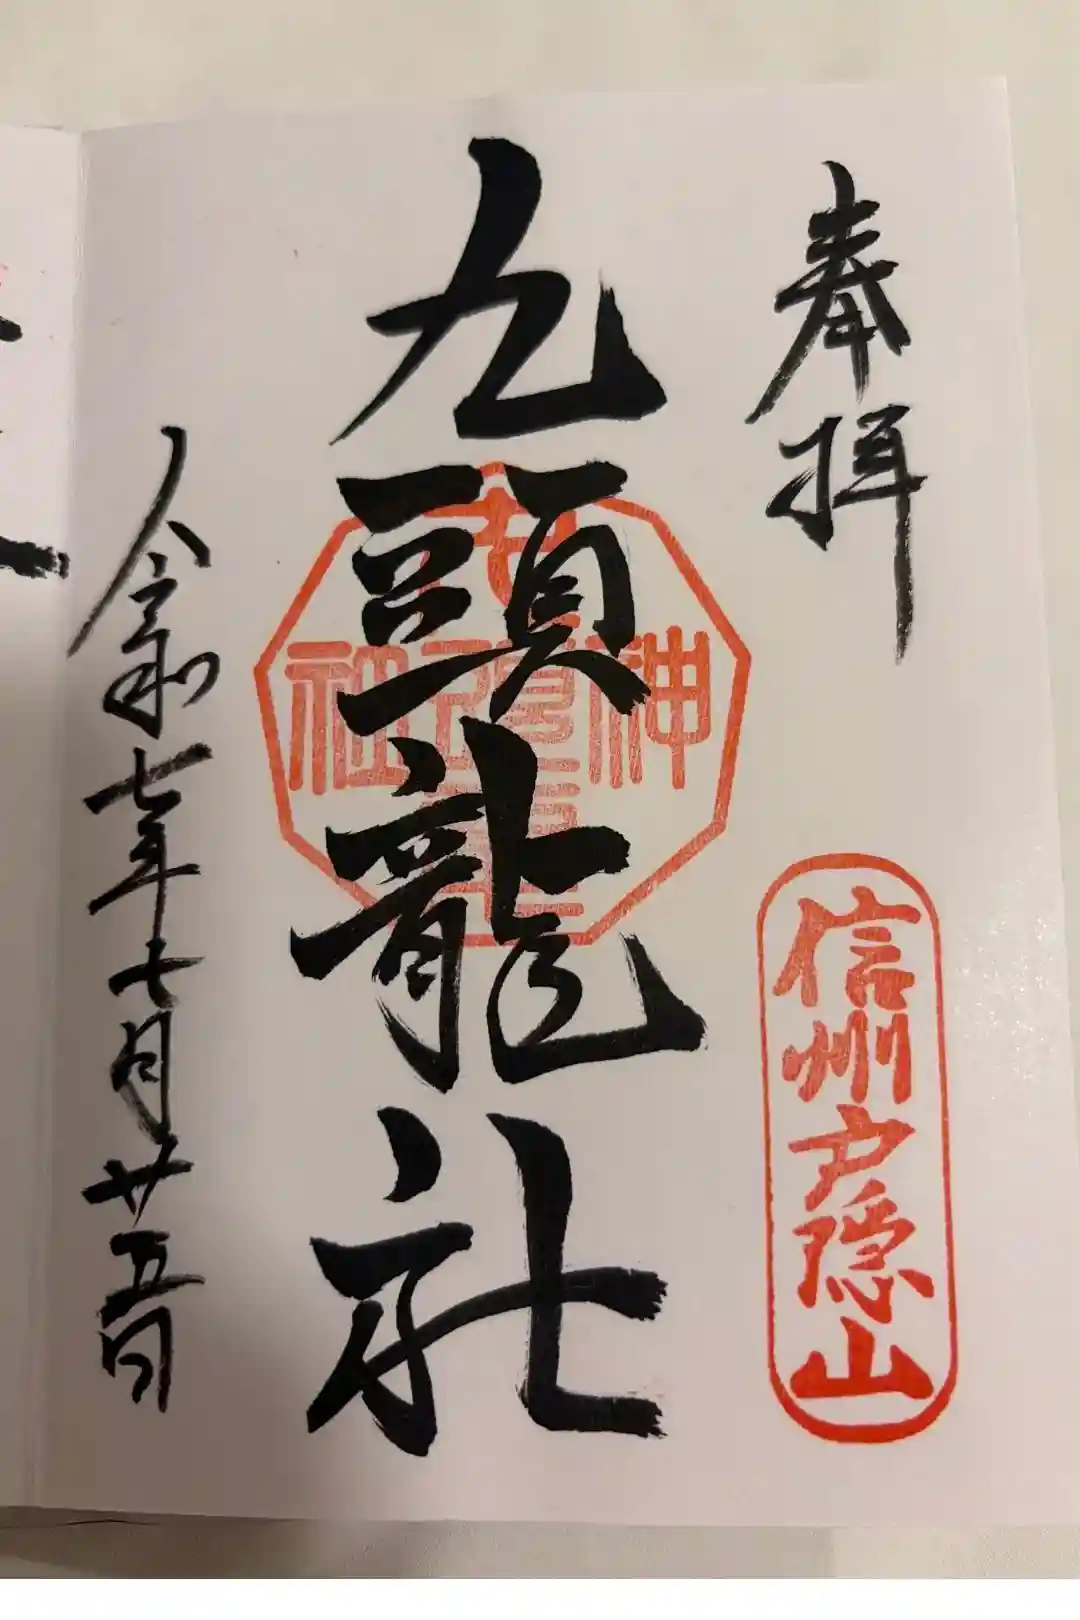 奉拝
信州戸隠山
九頭龍社
令和七年七月廿五日